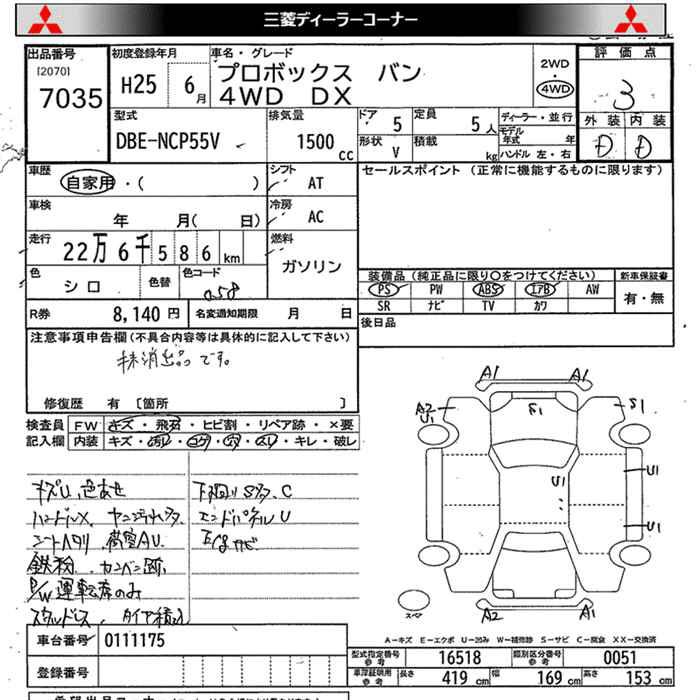 三菱ディーラーコーナー
出品番号 初度登録年月 車名・グレード 評価点
[2070]
7035 H25 6月 プロボックス バン 2WD 3
4WD DX 4WD
型式 排気量 ドア 定員 ディーラー・並行 外装 内装
DBE-NCP55V 1500cc 5 5人 モデル年式 年 D D
形状 V 積載 kg ハンドル 左・右
車歴 シフト セールスポイント (正常に機能するものに限ります)
自家用・( ) AT
車検 冷房
年 月( 日) AC
走行 燃料
22万6千586km ガソリン
色 色替 色コード 装備品(純正品に限り○をつけてください) 新車保証書
シロ 058 PS PW ABS エアB AW 有・無
SR ナビ TV カワ
R券 8,140円 名変通知期限 月 日 後日品
注意事項申告欄(不具合内容等は具体的に記入して下さい)
抹消出品です。
修復歴 有 [箇所 ]
検査員 FW キズ・飛石・ヒビ割・リペア跡・×要
記入欄 内装 キズ・汚れ・コゲ・穴・スリ・キレ・破レ
A1 A1
A2 U1 S1 S1
U1 U1
U1
スペア A2 A1
キズU 色あせ 下回りS多.C
ハンドルX エンドパネルU
シートヘタリ
鉄粉
P/W運転席のみ
スタッドレス タイヤ積込
A-キズ E-エクボ U-凹み W-補修跡 S-サビ C-腐食 XX-交換済
車台番号 0111175 型式指定番号 参考 16518 類別区分番号 参考 0051
登録番号 車庫証明用 参考 長さ 419 cm 幅 169 cm 高さ 153 cm